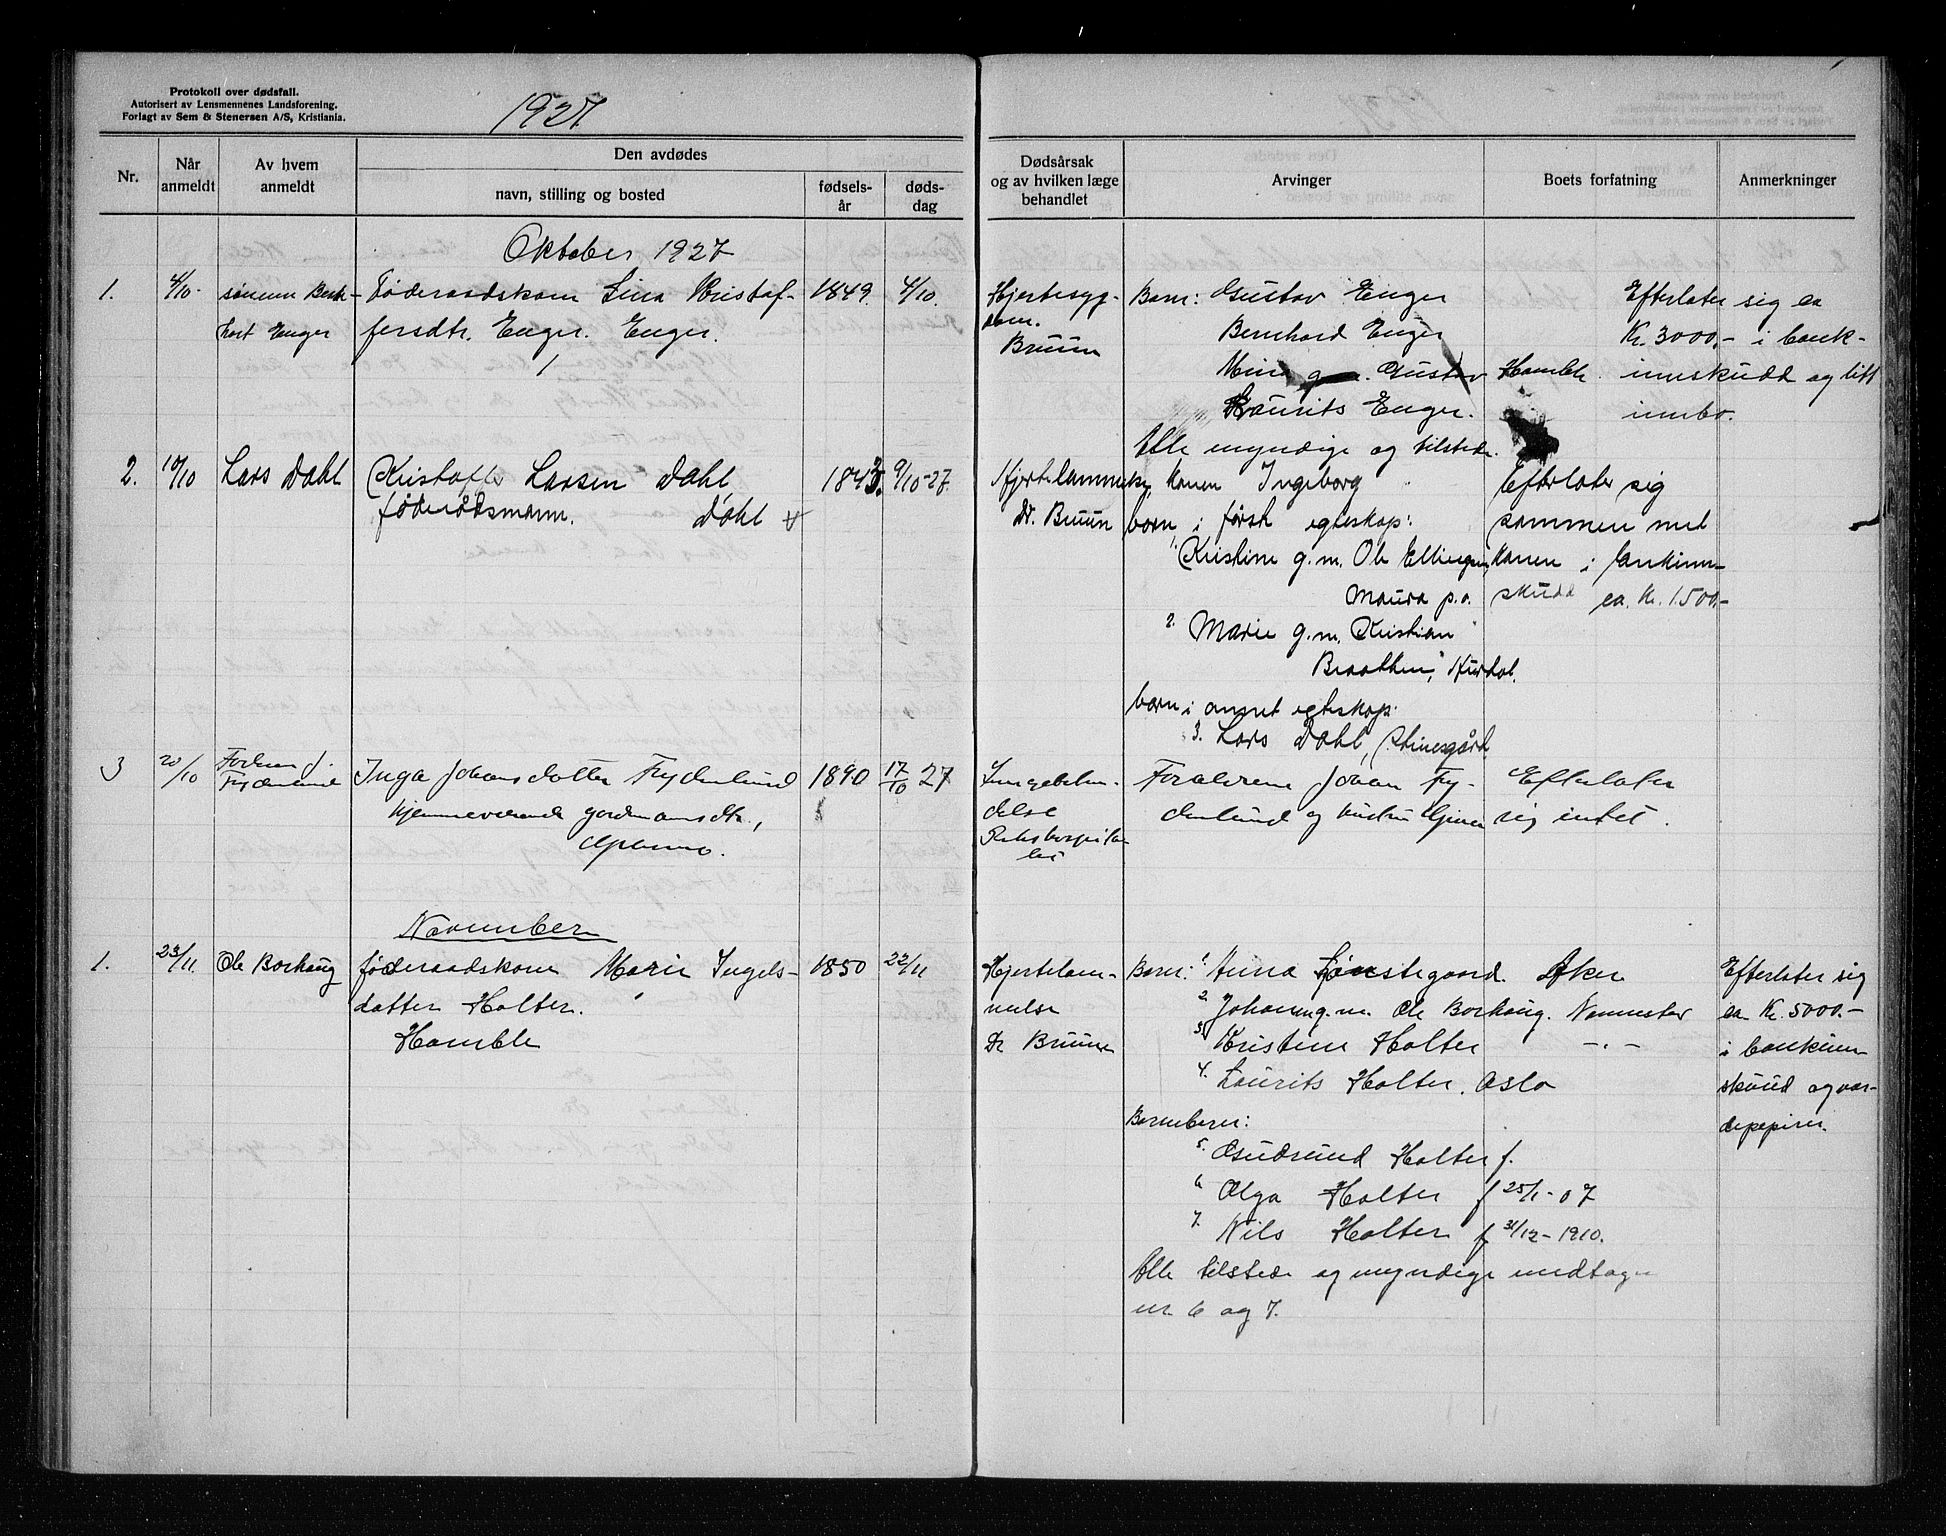 Protokoll over dødsfall.
Autorisert av Lensmennenes Landsforening.
Forlagt av Sem & Stenersen A/S, Kristiania.
1927
Nr.
Når anmeldt
Av hvem anmeldt
Den avdødes
navn, stilling og bosted
fødselsår
dødsdag
Dødsårsak og av hvilken læge behandlet
Arvinger
Boets forfatning
Anmerkninger
Oktober 1927
1. 4/10- sønnen Føderaadskone Lina Kristof- 1849. 4/10. Hjertesyg- Barn: Gustav Enger Efterlater sig ca
Enger fersdtr. Enger. Enger. dom. Bernhard Enger Kr. 3000.- i bank-
Bruun Gustav Hamble innskudd og litt
Laurits Enger. innbo.
Alle myndige og tilstede.
2. 10/10 Lars Dahl Kristoffer Larsen Dahl 1843. 9/10-27. Hjertelammelse, konen Ingeborg Efterlater sig
føderådsmann. Dahl Dr. Bruun born i først egteskap: sammen med
1. Kristine g.m. Ole Ellingsen, konen i bankinn-
Maura p.o. skudd ca. Kr. 1500.-
2. Marie g.m. Kristian
Braathen, Hurdal.
born i annet egteskap:
3. Lars Dahl,
3 20/10 J. Inga Johansdatter Frydenlund 1890 17/10 27 Lungebeten- Foreldrene Johan Fry- Efterlater
Frydenlund hjemmeværende gardmannsdtr., delse denlund og hustru sig intet.
Rikshospita-
let
November
1. 23/11. Ole Borhaug føderaadskone Marie Ingels- 1850 22/11 Hjertelam- Barn: 1. Anna Aker Efterlater sig
datter Holter. melse 2. g.m. Ole Borhaug. Nannestad ca Kr. 5000.-
Hamble Dr Bruun 3. Kristine Holter -"- i bankinn-
4. Laurits Holter. Oslo skudd og ver-
Barnebarn: depapirer.
5. Gudmund Holter f.
6 Olga Holter f 25/1-07
7. Nils Holter f 31/12-1910.
Alle tilstede og myndige undtagen
nr. 6 og 7.